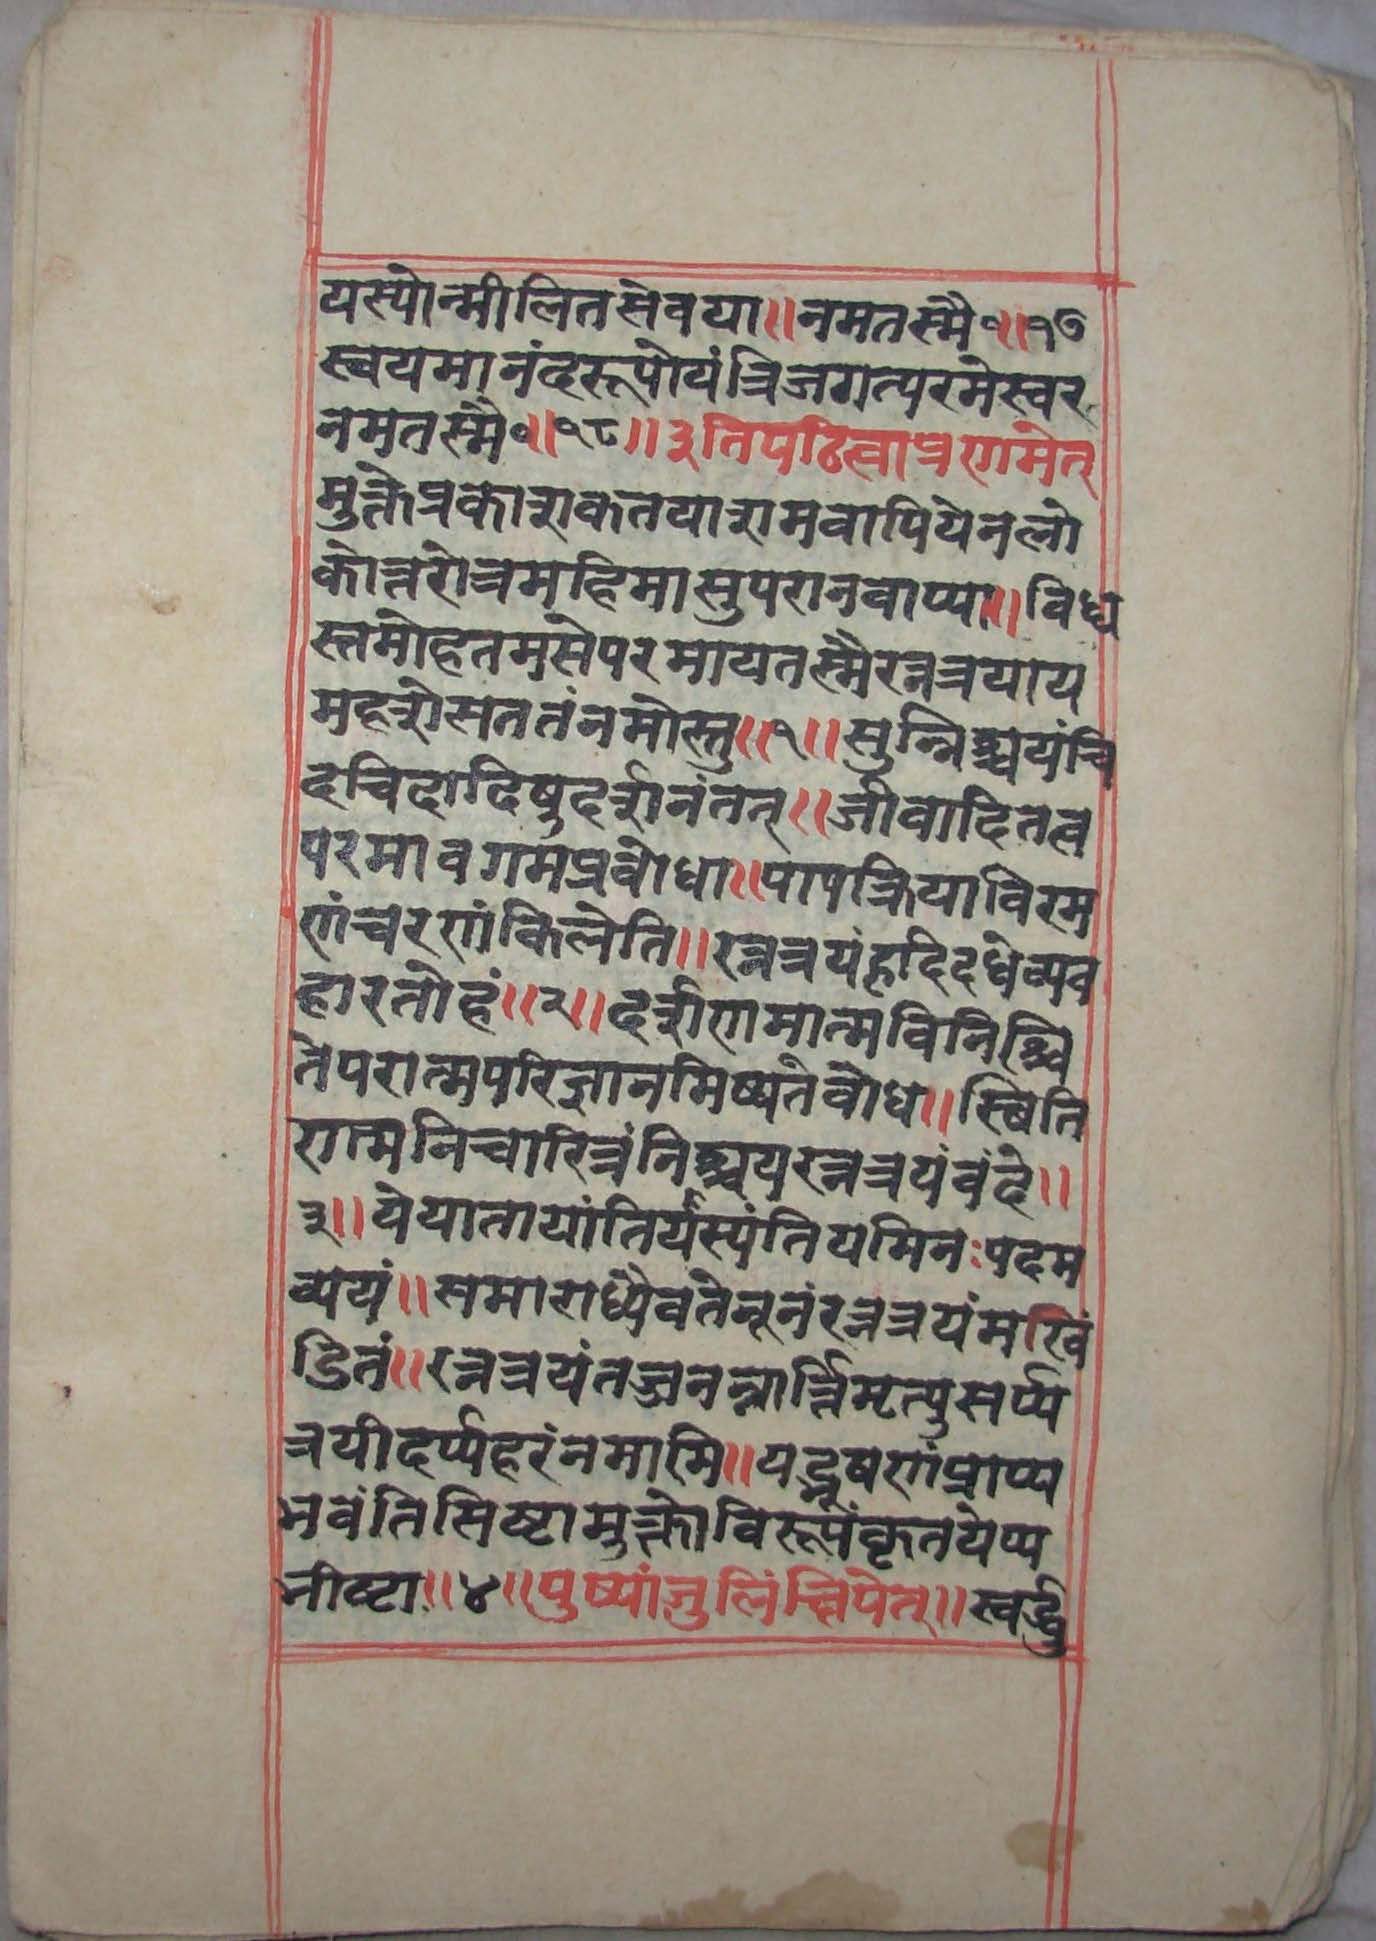 यस्योन्मीलितसेवया॥नमतस्मै०॥१७
स्वयमानंदरूपोयंत्रिजगत्परमेस्वर
नमतस्मै०॥१८॥इतिपठित्वाप्रणमेत्
मुक्तेप्रकाशकतयाशमवापियेनलो
कोत्तरोत्रमहिमासुपरानवाप्या॥विध्व
स्तमोहतमसेपरमायतस्मैरत्नत्रयाय
महशेसततंनमोस्तु॥१॥सुन्निश्चयंचि
दचिदादिषुदर्शनंतत्॥जीवादितत्व
परमावगमप्रवोधा॥पापक्रियाविरम
णंचरणंकिलेति॥रत्नत्रयंहृदिदधेव्यव
हारतोहं॥२॥दर्शणमात्मविनिश्चि
तेपरात्मपरिज्ञानमिष्यतेवोध॥स्थिति
रात्मनिचारित्रंनिश्चयरत्नत्रयंवंदे॥
३॥येयातायांतिर्यस्यंतियमिनःपदम
व्ययं॥समाराध्यैवतेनूनंरत्नत्रयंमखं
डितं॥रत्नत्रयंतज्जनन्नार्त्तिमृत्युसर्प्प
त्रयीदर्प्पहरंनमामि॥यद्भूषणंप्राप्य
भवंतिसिष्टामुक्तोविरूपंकृतयेप्य
भीष्टा॥४॥पुष्पांजुलिंक्षिपेत्॥स्वर्द्धु